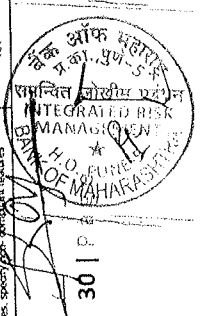 बैंक ऑफ महाराष्ट्र
प्र.का., पुणे-5
समन्वित जोखीम प्रबंधन
INTEGRATED RISK
MANAGEMENT
H.O. PUNE
BANK OF MAHARASHTRA
30